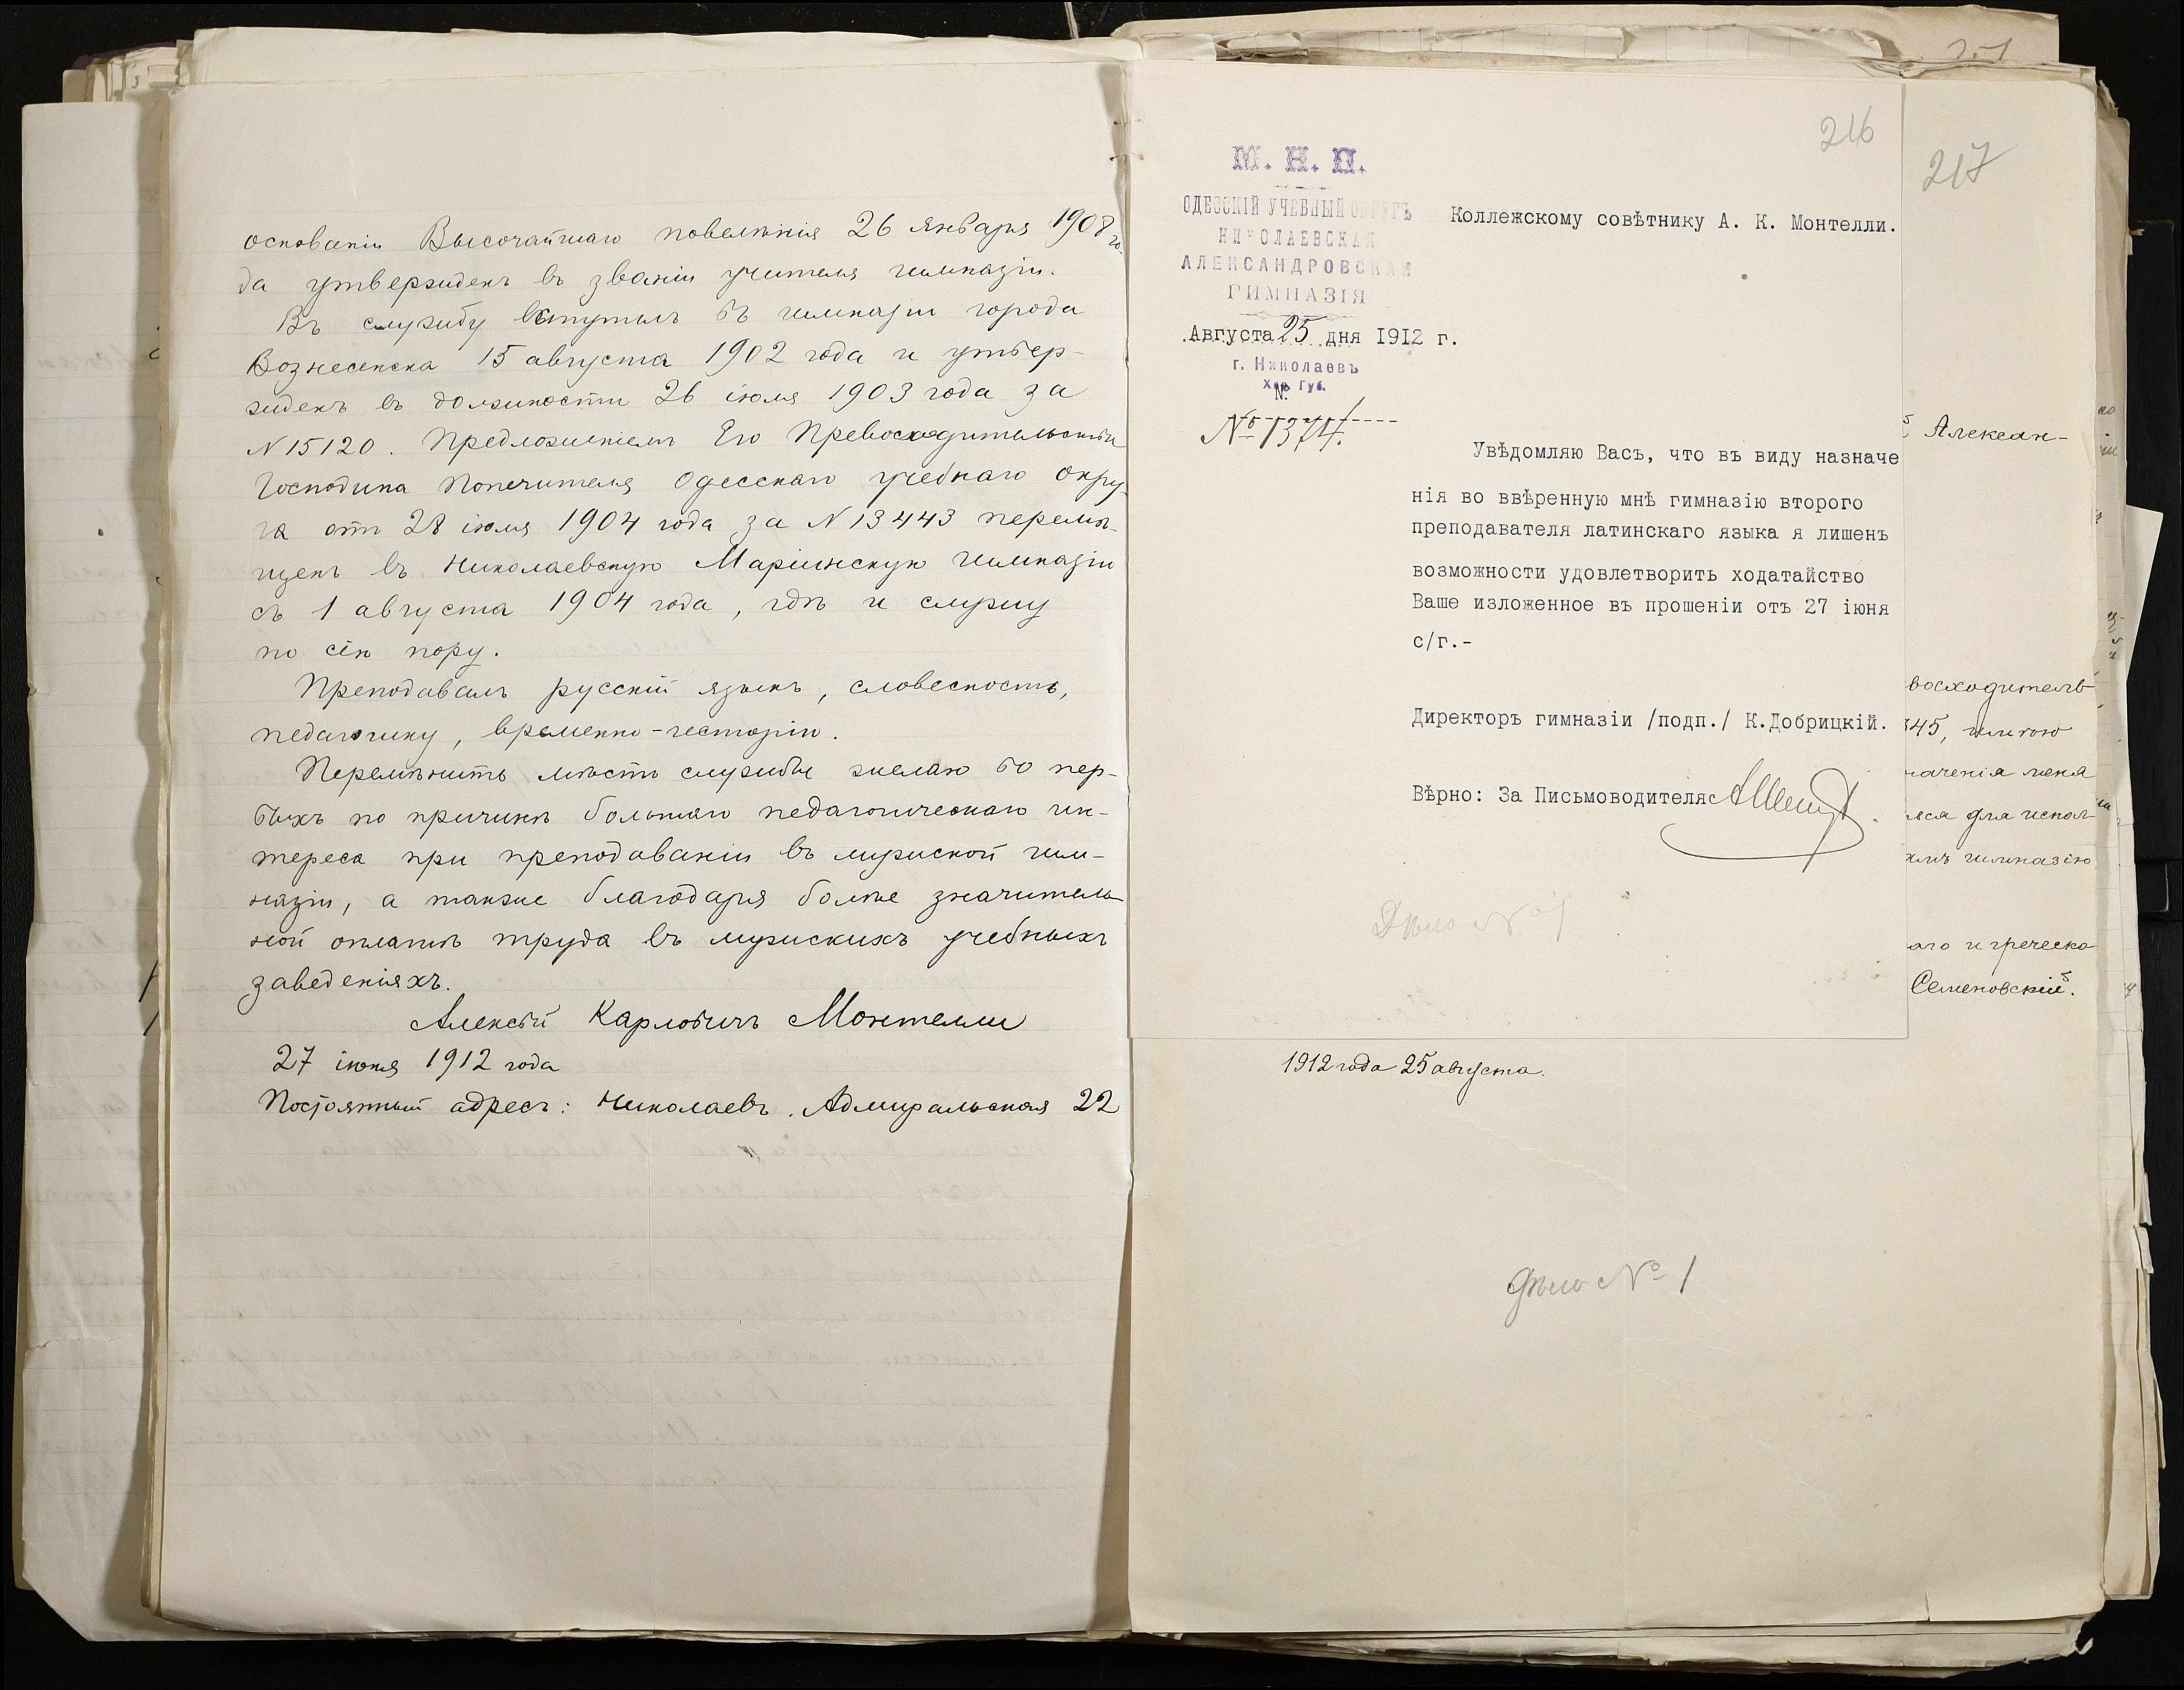 основаніи Высочайшаго повелѣнія 26 января 1908 го-
да утвержденъ въ званіи учителя гимназіи.
Въ службу вступилъ въ гимназіи города
Вознесенска 15 августа 1902 года и утвер-
жденъ въ должности 26 іюля 1903 года за
N 15120. Предложеніемъ Его Превосходительства
Господина Попечителя Одесскаго учебнаго окру-
га отъ 28 іюля 1904 года за N 13443 перемѣ-
щенъ въ Николаевскую Маріинскую гимназію
съ 1 августа 1904 года, гдѣ и служу
по сію пору.
Преподавалъ русскій языкъ, словесность,
педагогику, временно - исторію.
Перемѣнить мѣсто службы желаю во пер-
выхъ по причинѣ большаго педагогическаго ин-
тереса при преподаваніи въ мужской гим-
назіи, а также благодаря болѣе значитель-
ной оплатѣ труда въ мужскихъ учебныхъ
заведеніяхъ.
Алексѣй Карловичъ Монтелли
27 іюня 1912 года
Постоянный адресъ: Николаевъ. Адмиральская 22
216
М. Н. П.
ОДЕССКІЙ УЧЕБНЫЙ ОКРУГЪ
НИКОЛАЕВСКАЯ
АЛЕКСАНДРОВСКАЯ
ГИМНАЗІЯ
Августа 25 дня 1912 г.
г. Николаевъ
Хер. Губ.
№
№ 1374.
Коллежскому совѣтнику А. К. Монтелли.
Увѣдомляю Васъ, что въ виду назначе
нія во ввѣренную мнѣ гимназію второго
преподавателя латинскаго языка я лишенъ
возможности удовлетворить ходатайство
Ваше изложенное въ прошеніи отъ 27 іюня
с/г.-
Директоръ гимназіи /подп./ К.Добрицкій.
Вѣрно: За Письмоводителя
Дѣло № 1
217
Алексан-
восходитель-
345, имѣю
наченія меня
яся для испол-
гимназію
аго и греческо
Семеновскій.
1912 года 25 августа.
Дѣло № 1